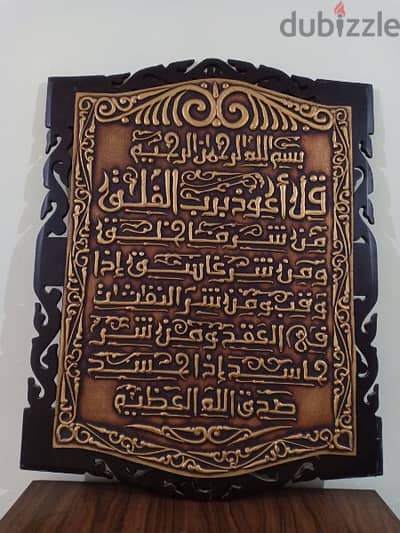 dubizzle
بسم الله الرحمن الرحيم
قل أعوذ برب الفلق
من شر ما خلق
ومن شر غاسق إذا
وقب ومن شر النفاثات
في العقد ومن شر
حاسد إذا حسد
صدق الله العظيم